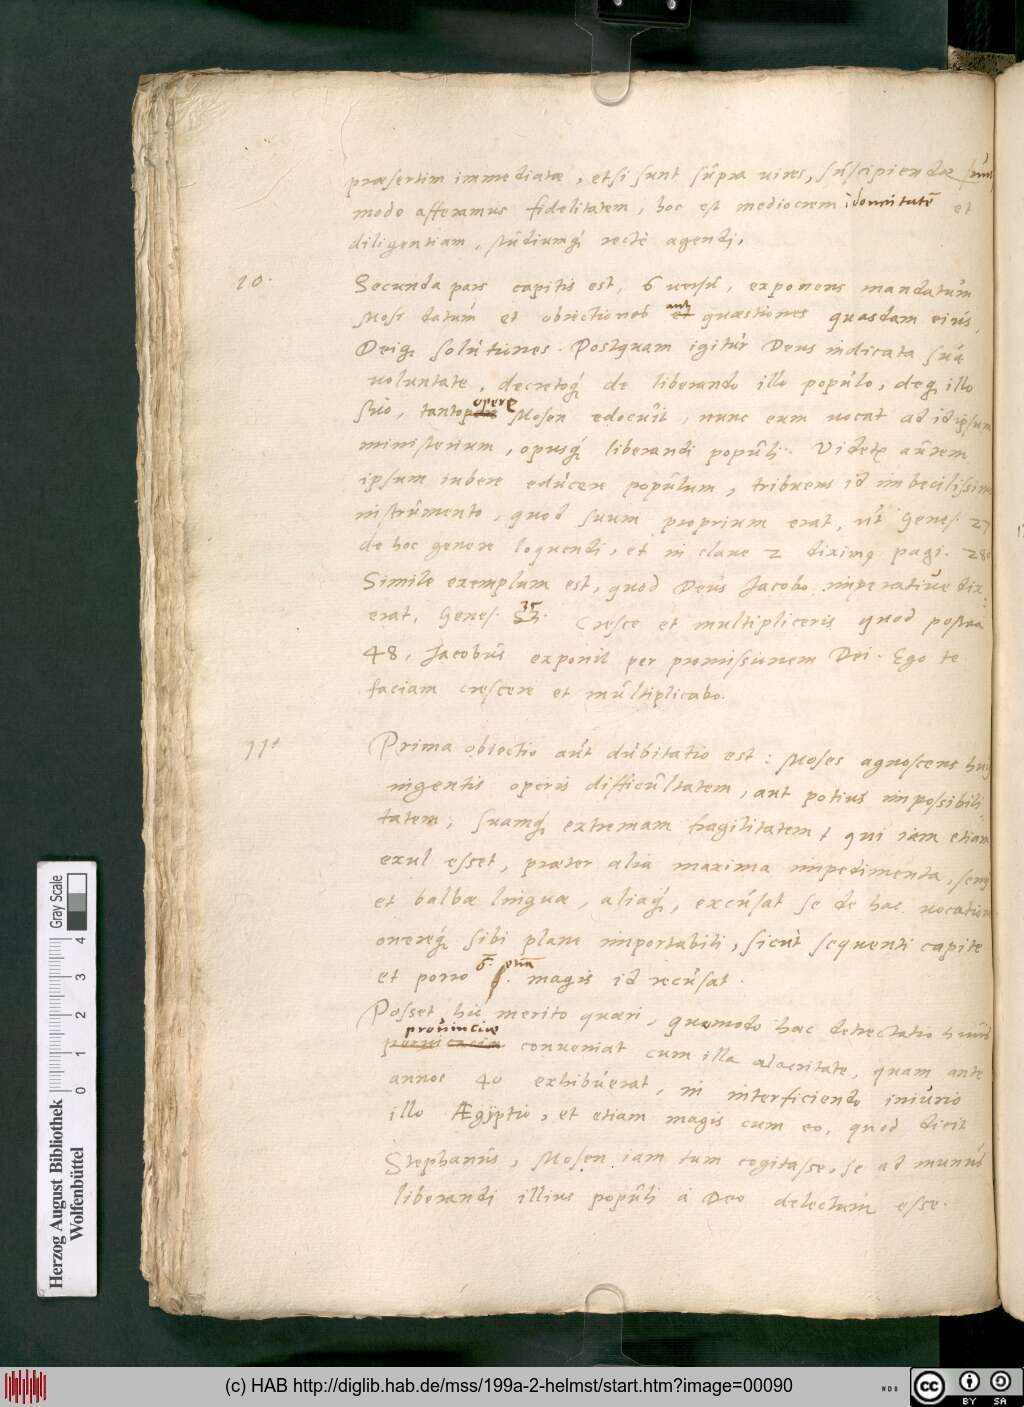 præsertim immediatæ, etsi sunt supra vires, suscipiendæ sunt
modo afferamus fidelitatem, hoc est mediocrem idoneitatē et
diligentiam, studiumq́ rectè agendi.
10. Secunda pars capitis est, 6 versu, exponens mandatum
Mosi datum et obiectiones aut et quæstiones quasdam eius,
Deiq́ solutiones. Postquam igitur Deus indicata sua
voluntate, decretoq́ de liberando illo populo, deq́ illo
suo, opere Mosen edocuit, nunc eum vocat ad id ipsum
ministerium, opusq́ liberandi populi. Videtr autem
ipsum iubere educere populum, tribuens id imbecilissimo
instrumento, quod suum proprium erat, ut Genes. 27
de hoc genere loquendi, et in clave 2 diximq pagi. 280
Simile exemplum est, quod Deus Jacobo imperative dix:
erat, Genes. 35. Cresce et multipliceris quod postea
48, Jacobus exponit per promissionem Dei. Ego te
faciam crescere et multiplicabo.
11. Prima obiectio aut dubitatio est: Moses agnoscens huius
ingentis operis difficultatem, aut potius impossibili
tatem, suamq́ extremam fragilitatem, qui iam etiam
exul esset, præter alia maxima impedimenta,
et balbæ linguæ, aliaq́, excusat se de hac vocatione
onereq́ sibi plane importabili, sicut sequenti capite
et porro 6. etiā magis id recusat.
Posset hic merito quæri, quomodo hac detrectatio huius
provinciæ conveniat cum illa alacritate, quam ante
annos 40 exhibuerat, in interficiendo iniurio
illo Ægyptio, et etiam magis cum eo, quod dicit
Stephanus, Mosen iam tum cogitasse, se ad munus
liberandi illius populi à Deo delectum esse.
Herzog August Bibliothek
Wolfenbüttel
0 1 2 3 4
Gray Scale
(c) HAB http://diglib.hab.de/mss/199a-2-helmst/start.htm?image=00090
cc BY SA